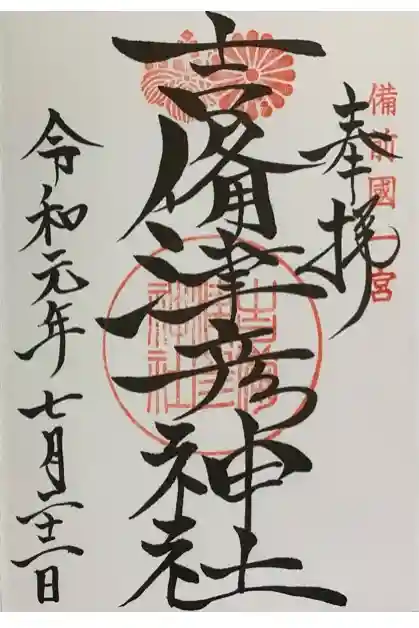 備前國一宮
奉拝
吉備津彦神社
吉備
津彦
神社
令和元年七月二十二日